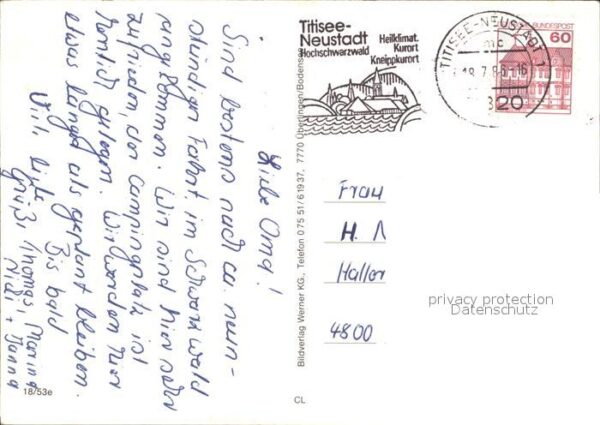 Liebe Oma!
Sind bestens nach ca. neun-
stündigen Fahrt, im Schwarzwald
angekommen. Wir sind hier sehr
zufrieden, der Campingplatz ist
herrlich gelegen. Wir werden hier
etwas länger als geplant bleiben.
Bis bald
Viele liebe
Grüße Thomas, Marina
Heidi + Hanna
18/53e
CL
Bildverlag Werner KG., Telefon 075 51/6 19 37, 7770 Überlingen/Bodensee
Titisee-
Neustadt
Hochschwarzwald
Heilklimat.
Kurort
Kneippkurort
TITISEE-NEUSTADT 1
mc
18.7.86-16
7820
DEUTSCHE BUNDESPOST
60
Frau
H.
Haller
4800
privacy protection
Datenschutz